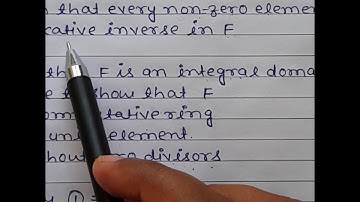 that every non-zero elemen
cative inverse in F
th F is an integral doma
e to show that F
ommutative ring
unit element.
hout zero divisors
① =